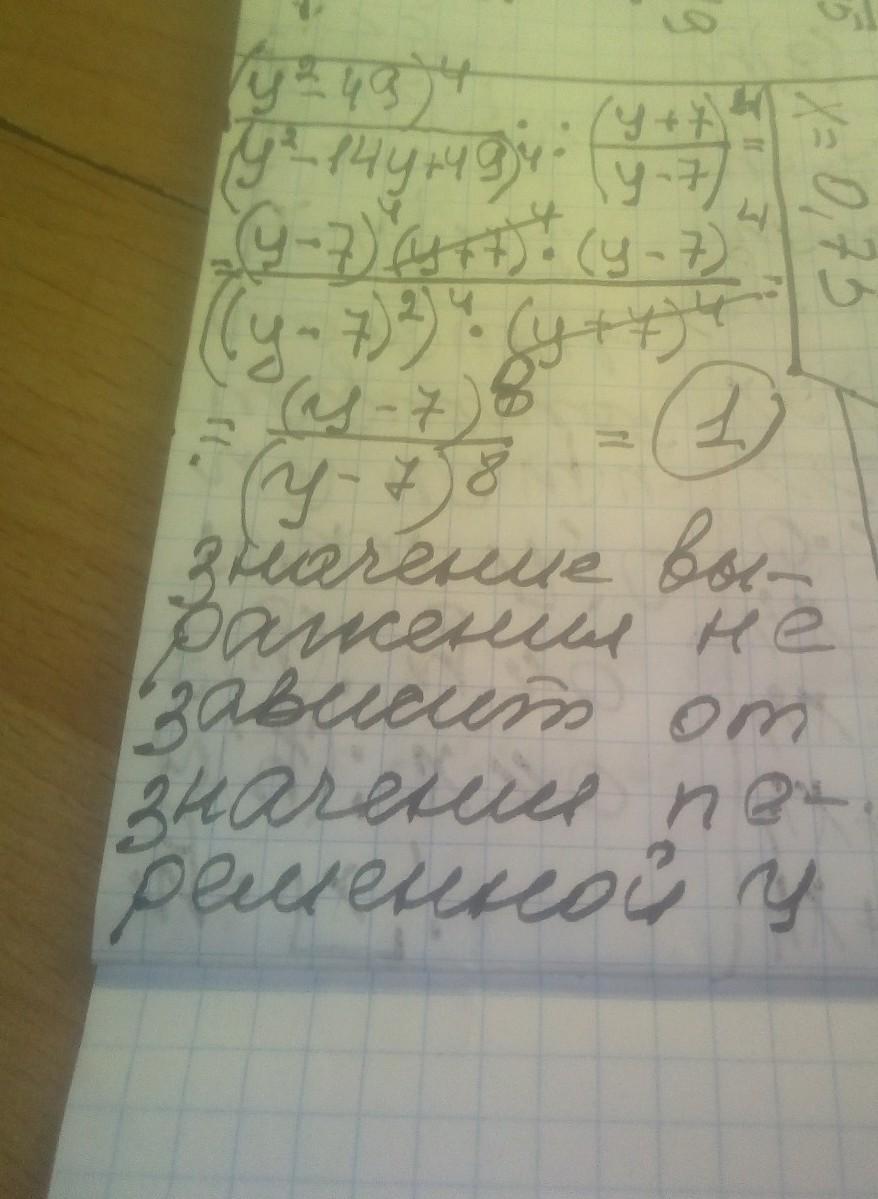 (y² - 49)⁴
(y² - 14y + 49)⁴ : (y + 7)⁴ =
(y - 7)⁴
= (y - 7)⁴ (y + 7)⁴ · (y - 7)⁴
((y - 7)²)⁴ · (y + 7)⁴ =
= (y - 7)⁸ = 1
(y - 7)⁸
значение вы-
ражения не
зависит от
значения пе-
ременной y
x = 0,75